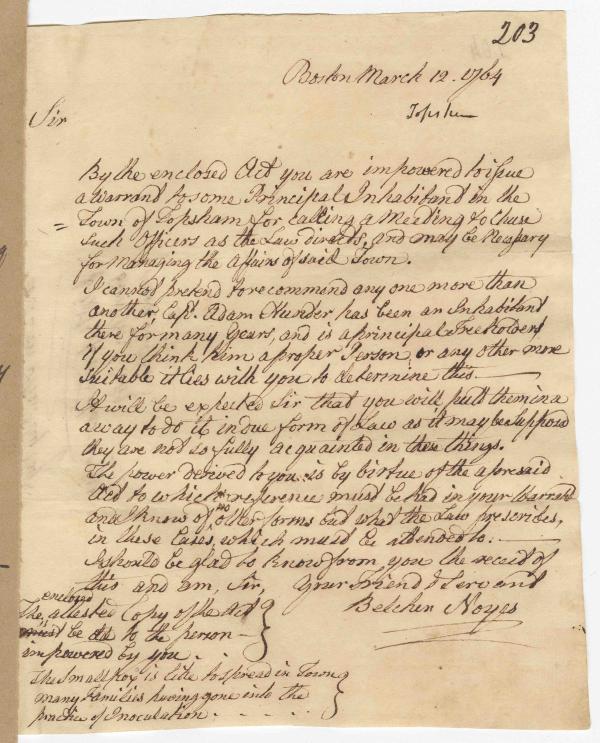 203
Boston March 12. 1764
Topsham
Sir
By the enclosed Act you are impowered to issue
a Warrant to some Principal Inhabitant in the
= Town of Topsham for calling a Meeting to Chuse
Such Officers as the Law directs, and may be Nessary
for Managing the Affairs of said Town.
I cannot pretend to recommend any one more than
another Capt. Adam Hunder has been an Inhabitant
there for many Years, and is a principal Freeholder
if you think him a proper Person, or any other more
suitable it lies with you to determine this.
It will be expected Sir that you will putt them in a
a way to do it in due form of Law as it may be Suppos'd
they are not so fully acquainted in these things.
The power derived to you is by birtue of the aforesaid
Act to which reference must be had in your Warrant
and I know of no other forms but what the Law prescribes,
in these Cases, which must be attended to.
I should be glad to know from you the receit of
this and am, Sir, Your Friend & Servant
Belcher Noyes
enclosed
The attested Copy of the Act
is
must be to the person
impowered by you.
The Small pox is like to spread in Town
many Families having gone into the
practice of Inoculation.